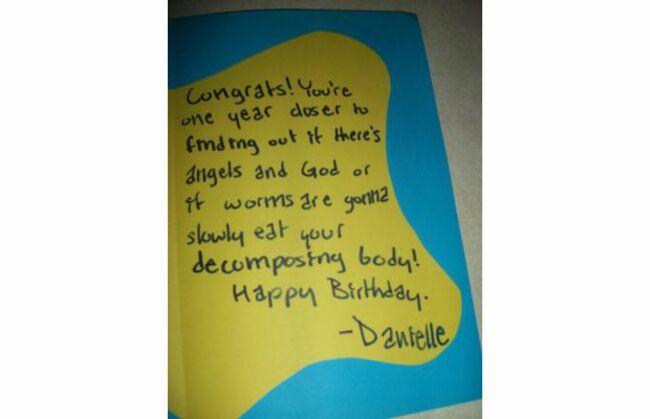 Congrats! You're
one year closer to
finding out if there's
angels and God or
if worms are gonna
slowly eat your
decomposing body!
Happy Birthday.
-Danielle